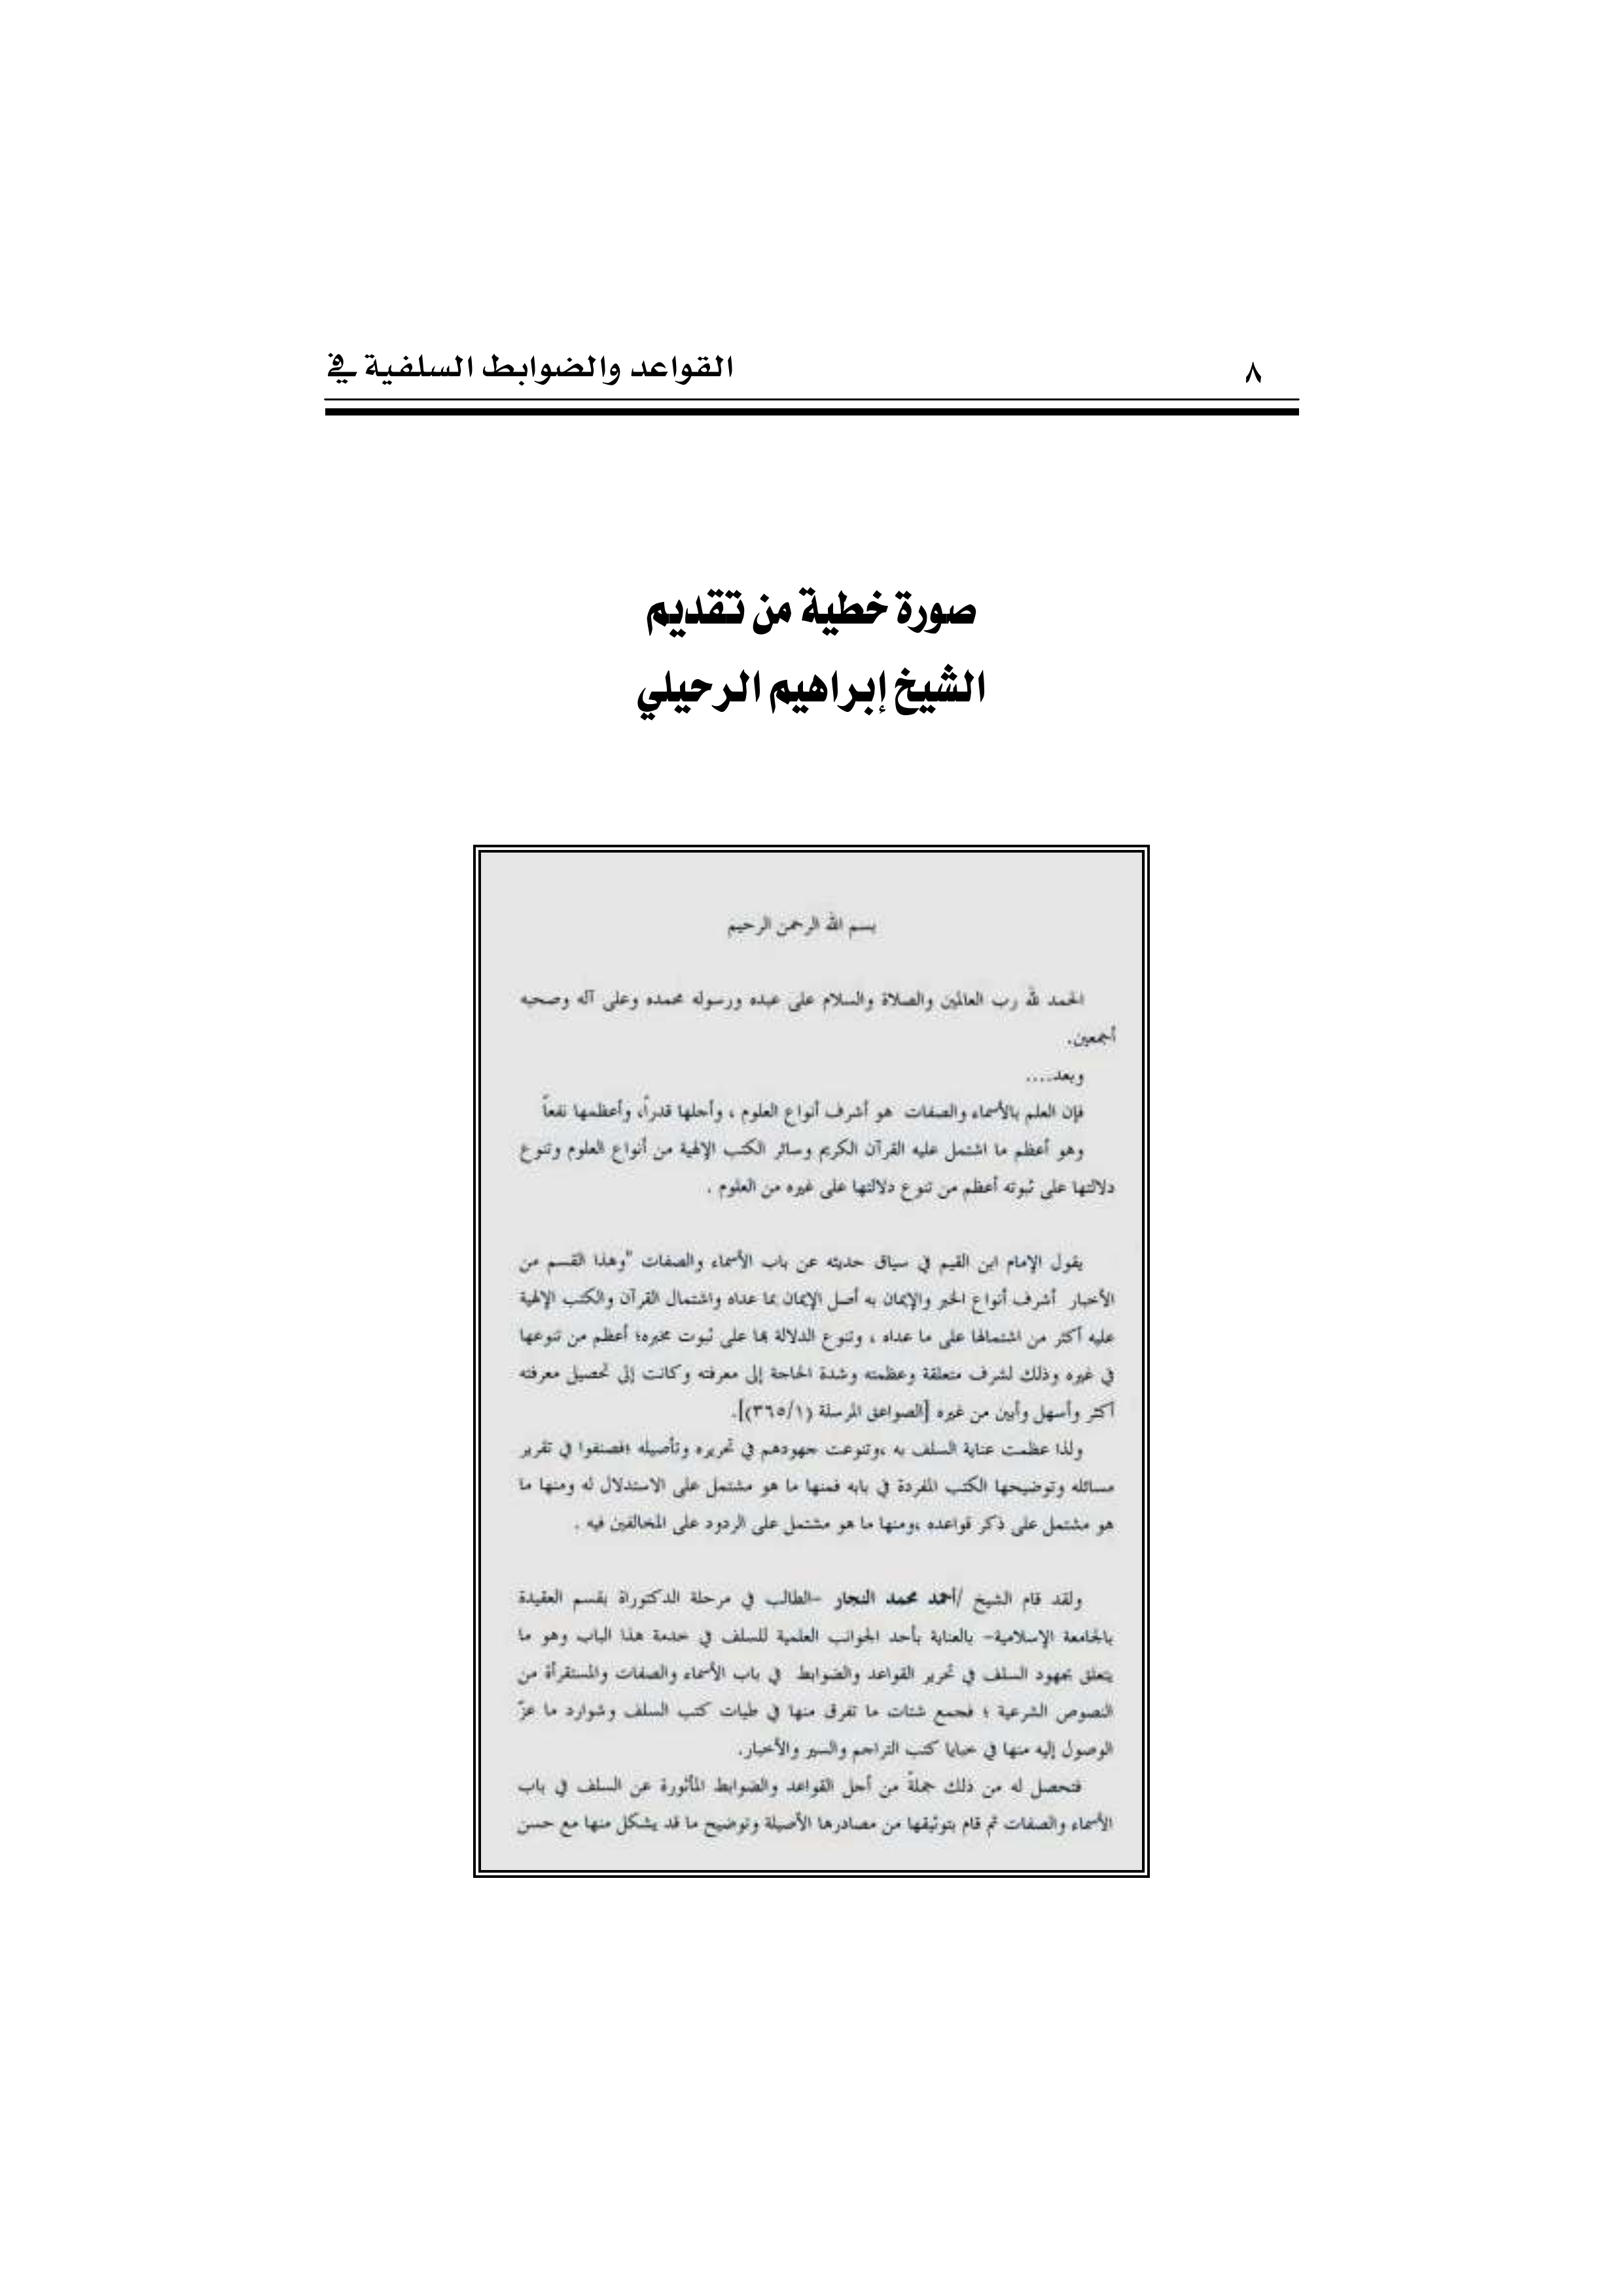 القواعد والضوابط السلفية في
٨
صورة خطية من تقديم
الشيخ إبراهيم الرحيلي
بسم الله الرحمن الرحيم
الحمد لله رب العالمين والصلاة والسلام على عبده ورسوله محمده وعلى آله وصحبه
أجمعين.
وبعد....
فإن العلم بالأسماء والصفات هو أشرف أنواع العلوم ، وأجلها قدراً، وأعظمها نفعاً
وهو أعظم ما اشتمل عليه القرآن الكريم وسائر الكتب الإلهية من أنواع العلوم وتنوع
دلالتها على ثبوته أعظم من تنوع دلالتها على غيره من العلوم .
يقول الإمام ابن القيم في سياق حديثه عن باب الأسماء والصفات "وهذا القسم من
الأخبار أشرف أنواع الخبر والإيمان به أصل الإيمان بما عداه واشتمال القرآن والكتب الإلهية
عليه أكثر من اشتمالها على ما عداه ، وتنوع الدلالة بها على ثبوت مخبره؛ أعظم من تنوعها
في غيره وذلك لشرف متعلقة وعظمته وشدة الحاجة إلى معرفته وكانت إلى تحصيل معرفته
أكثر وأسهل وأبين من غيره [الصواعق المرسلة (٣٦٥/١)].
ولذا عظمت عناية السلف به ،وتنوعت جهودهم في تحريره وتأصيله ؛فصنفوا في تقرير
مسائله وتوضيحها الكتب المفردة في بابه فمنها ما هو مشتمل على الاستدلال له ومنها ما
هو مشتمل على ذكر قواعده ،ومنها ما هو مشتمل على الردود على المخالفين فيه .
ولقد قام الشيخ /أحمد محمد النجار –الطالب في مرحلة الدكتوراة بقسم العقيدة
بالجامعة الإسلامية– بالعناية بأحد الجوانب العلمية للسلف في خدمة هذا الباب وهو ما
يتعلق بجهود السلف في تحرير القواعد والضوابط في باب الأسماء والصفات والمستقرأة من
النصوص الشرعية ؛ فجمع شتات ما تفرق منها في طيات كتب السلف وشوارد ما عزّ
الوصول إليه منها في خبايا كتب التراجم والسير والأخبار.
فتحصل له من ذلك جملةً من أجل القواعد والضوابط المأثورة عن السلف في باب
الأسماء والصفات ثم قام بتوثيقها من مصادرها الأصيلة وتوضيح ما قد يشكل منها مع حسن